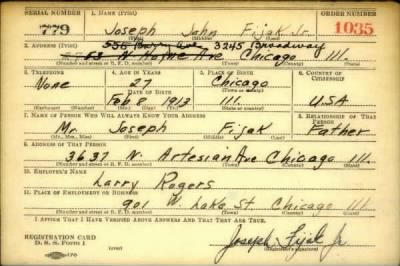 SERIAL NUMBER 1. NAME (Print) ORDER NUMBER
779 Joseph John Fijak Jr. 1035
2. ADDRESS (Print) 3245 Broadway
Ave Chicago Ill.
(Number and street or R. F. D. number) (Town) (County) (State)
3. TELEPHONE 4. AGE IN YEARS 5. PLACE OF BIRTH 6. COUNTRY OF CITIZENSHIP
None 27 Chicago
DATE OF BIRTH (Town or county)
Feb 8 1913 Ill. U.S.A
(Exchange) (Number) (Mo.) (Day) (Yr.) (State or country)
7. NAME OF PERSON WHO WILL ALWAYS KNOW YOUR ADDRESS 8. RELATIONSHIP OF THAT PERSON
Mr. Joseph Fijak Father
(Mr., Mrs., Miss) (First) (Middle) (Last)
9. ADDRESS OF THAT PERSON
3637 N. Artesian Ave Chicago Ill.
(Number and street or R. F. D. number) (Town) (County) (State)
10. EMPLOYER'S NAME
Larry Rogers
11. PLACE OF EMPLOYMENT OR BUSINESS
901 W. Lake St. Chicago Ill.
(Number and street or R. F. D. number) (Town) (County) (State)
I AFFIRM THAT I HAVE VERIFIED ABOVE ANSWERS AND THAT THEY ARE TRUE.
REGISTRATION CARD
D. S. S. Form 1 Joseph Fijak Jr
(Registrant's signature)